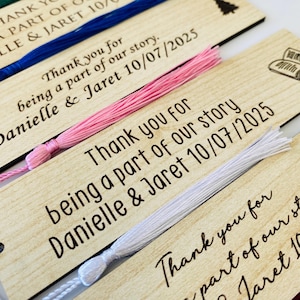 A PART OF O
LLE & JARET 10/07/2025
Thank you for
being a part of our story.
Danielle & Jaret 10/07/2025
Thank you for
being a part of our story
Danielle & Jaret 10/07/2025
Thank you for
a part of our st
& Jaret 10